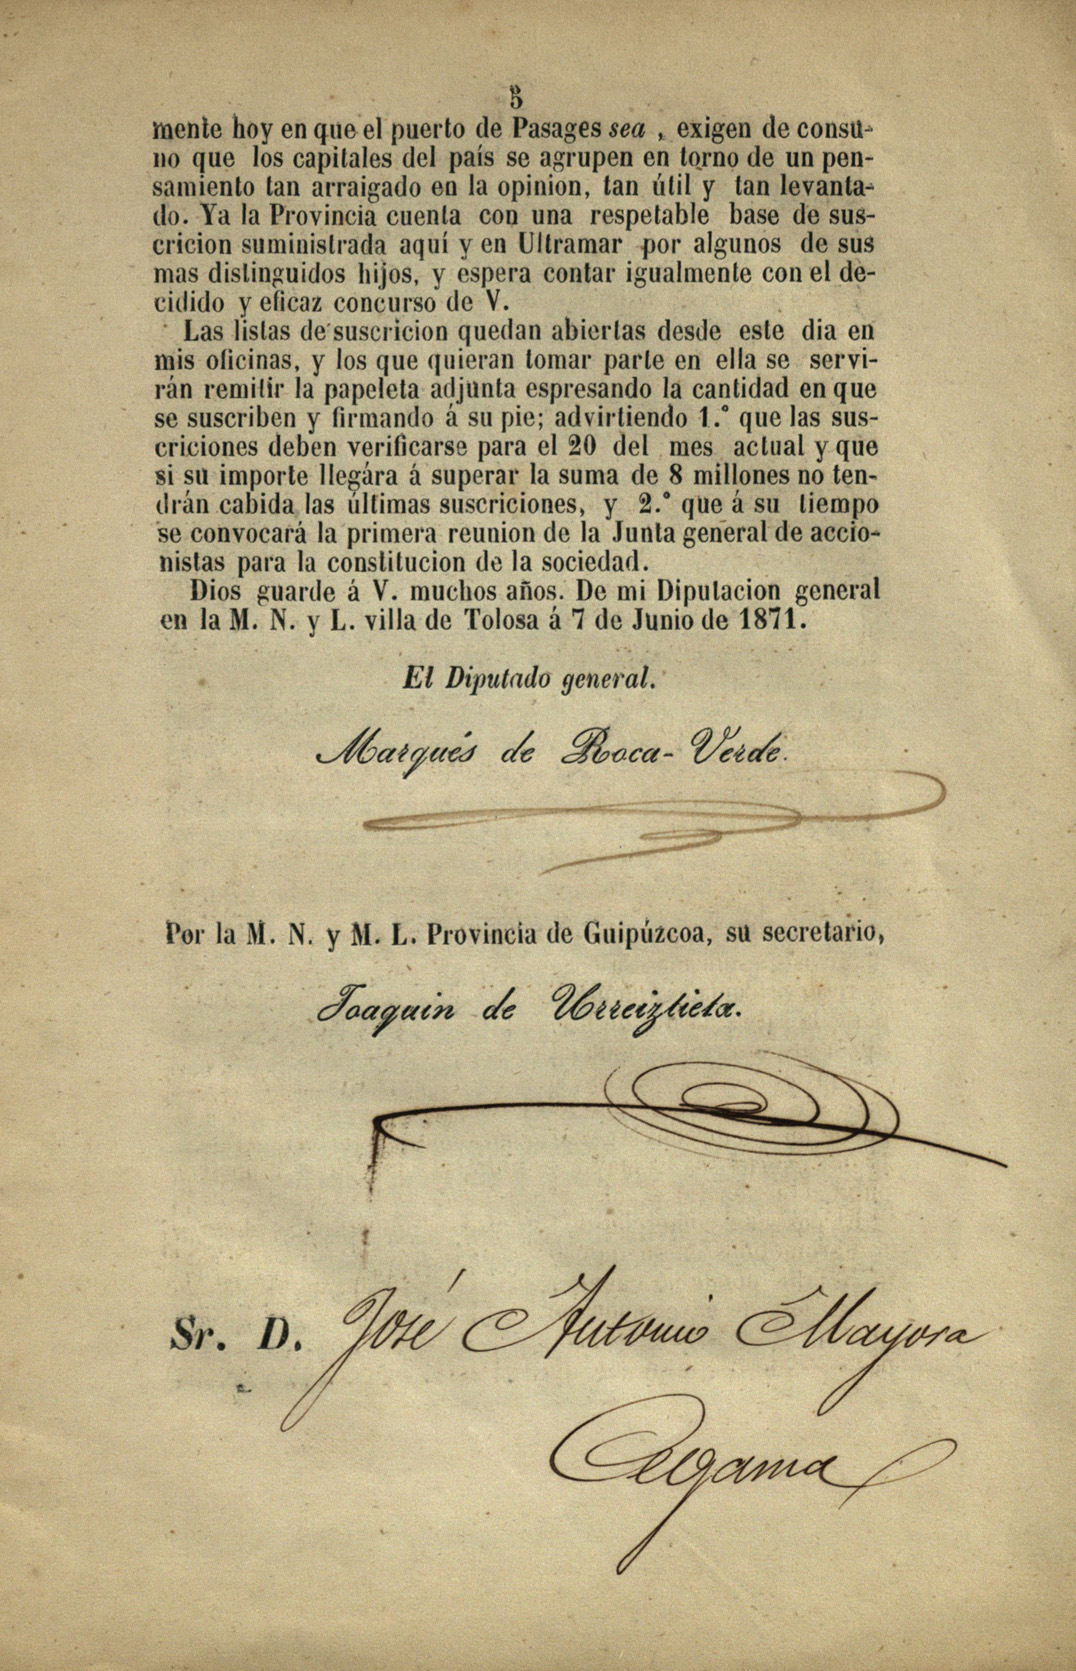 5
mente hoy en que el puerto de Pasages sea , exigen de consu-
no que los capitales del país se agrupen en torno de un pen-
samiento tan arraigado en la opinion, tan útil y tan levanta-
do. Ya la Provincia cuenta con una respetable base de sus-
cricion suministrada aquí y en Ultramar por algunos de sus
mas distinguidos hijos, y espera contar igualmente con el de-
cidido y eficaz concurso de V.
Las listas de suscricion quedan abiertas desde este dia en
mis oficinas, y los que quieran tomar parte en ella se servi-
rán remitir la papeleta adjunta espresando la cantidad en que
se suscriben y firmando á su pie; advirtiendo 1.º que las sus-
criciones deben verificarse para el 20 del mes actual y que
si su importe llegára á superar la suma de 8 millones no ten-
drán cabida las últimas suscriciones, y 2.º que á su tiempo
se convocará la primera reunion de la Junta general de accio-
nistas para la constitucion de la sociedad.
Dios guarde á V. muchos años. De mi Diputacion general
en la M. N. y L. villa de Tolosa á 7 de Junio de 1871.
El Diputado general.
Marqués de Roca-Verde.
Por la M. N. y M. L. Provincia de Guipúzcoa, su secretario,
Joaquin de Urreiztieta.
Sr. D. José Antonio Mayora
Cegama